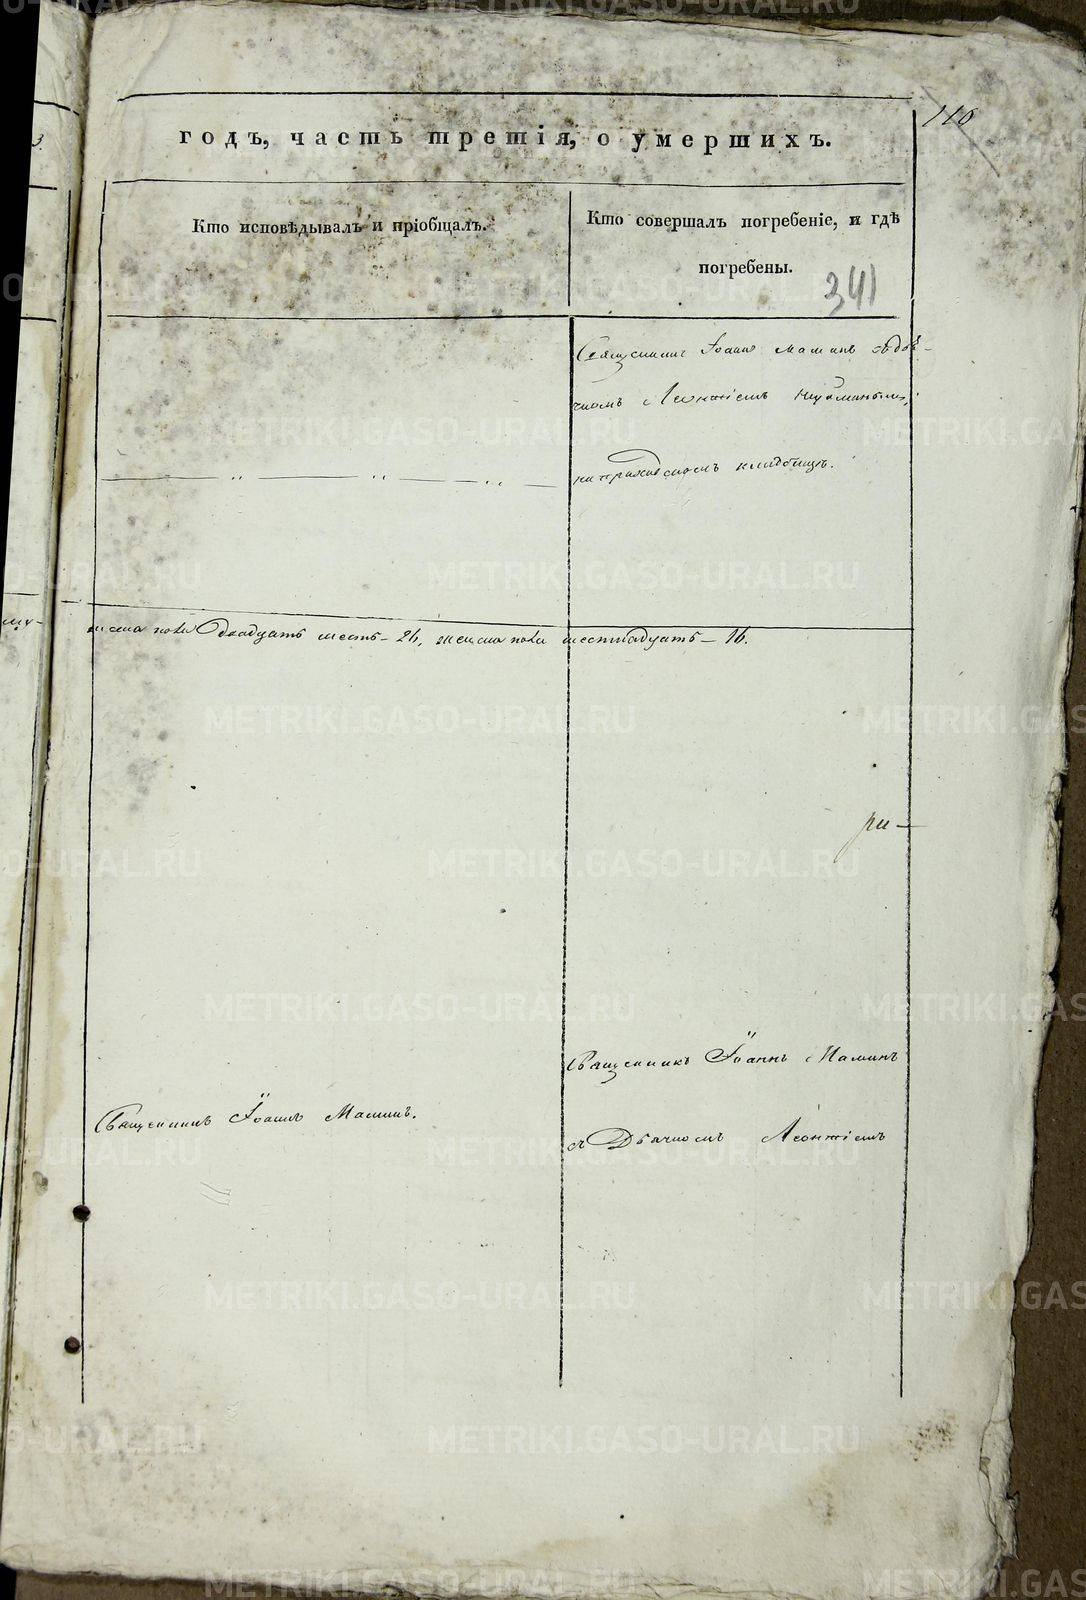 110
годъ, часть третія, о умершихъ.
Кто исповѣдывалъ и пріобщалъ.
Кто совершалъ погребеніе, и гдѣ
погребены.
341
Священникъ Іоаннъ Маминъ съ дья-
чкомъ Леонтіемъ
на приходскомъ кладбищѣ.
пола двадцать шесть – 26, женска пола шестнадцать – 16.
ри –
Священникъ Іоаннъ Маминъ
Священникъ Іоаннъ Маминъ.
съ Дьячкомъ Леонтіемъ
METRIKI.GASO-URAL.RU